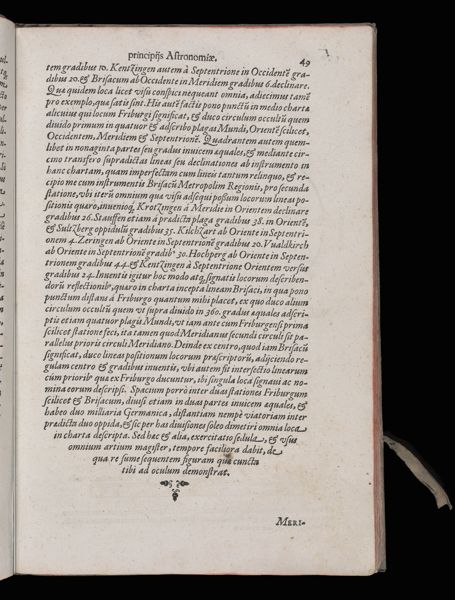 principijs Astronomiæ. 49
tem gradibus 10. Kentzingen autem à Septentrione in Occidentẽ gra-
dibus 20. & Brisacum ab Occidente in Meridiem gradibus 6. declinare.
Quæ quidem loca licet visu conspici nequeant omnia, adiecimus tamẽ
pro exemplo, quæ satis sint. His autẽ factis pono punctũ in medio chartæ
alicuius qui locum Friburgi significat, & duco circulum occultũ quem
diuido primum in quatuor & adscribo plagas Mundi, Orientẽ scilicet,
Occidentem, Meridiem & Septentrionẽ. Quadrantem autem quem-
libet in nonaginta partes seu gradus inuicem æquales, & mediante cir-
cino transfero supradictas lineas seu declinationes ab instrumento in
hanc chartam, quam imperfectam cum lineis tantum relinquo, & re-
cipio me cum instrumentis Brisacũ Metropolim Regionis, pro secunda
statione, vbi iterũ omnium quæ visu adsequi possum locorum lineas po-
sitionis quæro, inuenioq; Krotzingen à Meridie in Orientem declinare
gradibus 26. Stauffen etiam à prædicta plaga gradibus 38. in Orientẽ,
& Sultzberg oppidulũ gradibus 35. Kilchzart ab Oriente in Septentri-
onem 4. Zeringen ab Oriente in Septentrionẽ gradibus 20. Vualdkirch
ab Oriente in Septentrionẽ gradib⁹ 30. Hochperg ab Oriente in Septen-
trionem gradibus 44. & Kentzingen à Septentrione Orientem versus
gradibus 24. Inuentis igitur hoc modo atq; signatis locorum describen-
dorũ reflectionib⁹, quæro in charta incepta lineam Brisaci, in qua pono
punctum distans à Friburgo quantum mihi placet, ex quo duco alium
circulum occultũ quem vt supra diuido in 360. gradus æquales adscri-
ptis etiam quatuor plagis Mundi, vt iam ante cum Friburgensi prima
scilicet statione feci, ita tamen quod Meridianus secundi circuli sit pa-
rallelus prioris circuli Meridiano. Deinde ex centro, quod iam Brisacũ
significat, duco lineas positionum locorum præscriptorũ, adijciendo re-
gulam centro & gradibus inuentis, vbi autem fit intersectio linearum
cum priorib⁹ quæ ex Friburgo ducuntur, ibi singula loca signaui ac no-
mina eorum descripsi. Spacium porrò inter duas stationes Friburgum
scilicet & Brisacum, diuisi etiam in duas partes inuicem æquales, &
habeo duo milliaria Germanica, distantiam nempè viatoriam inter
prædicta duo oppida, & sic per has diuisiones soleo dimetiri omnia loca
in charta descripta. Sed hæc & alia, exercitatio sedula, & vsus
omnium artium magister, tempore faciliora dabit, de
qua re sume sequentem figuram quæ cuncta
tibi ad oculum demonstrat.
MERI-